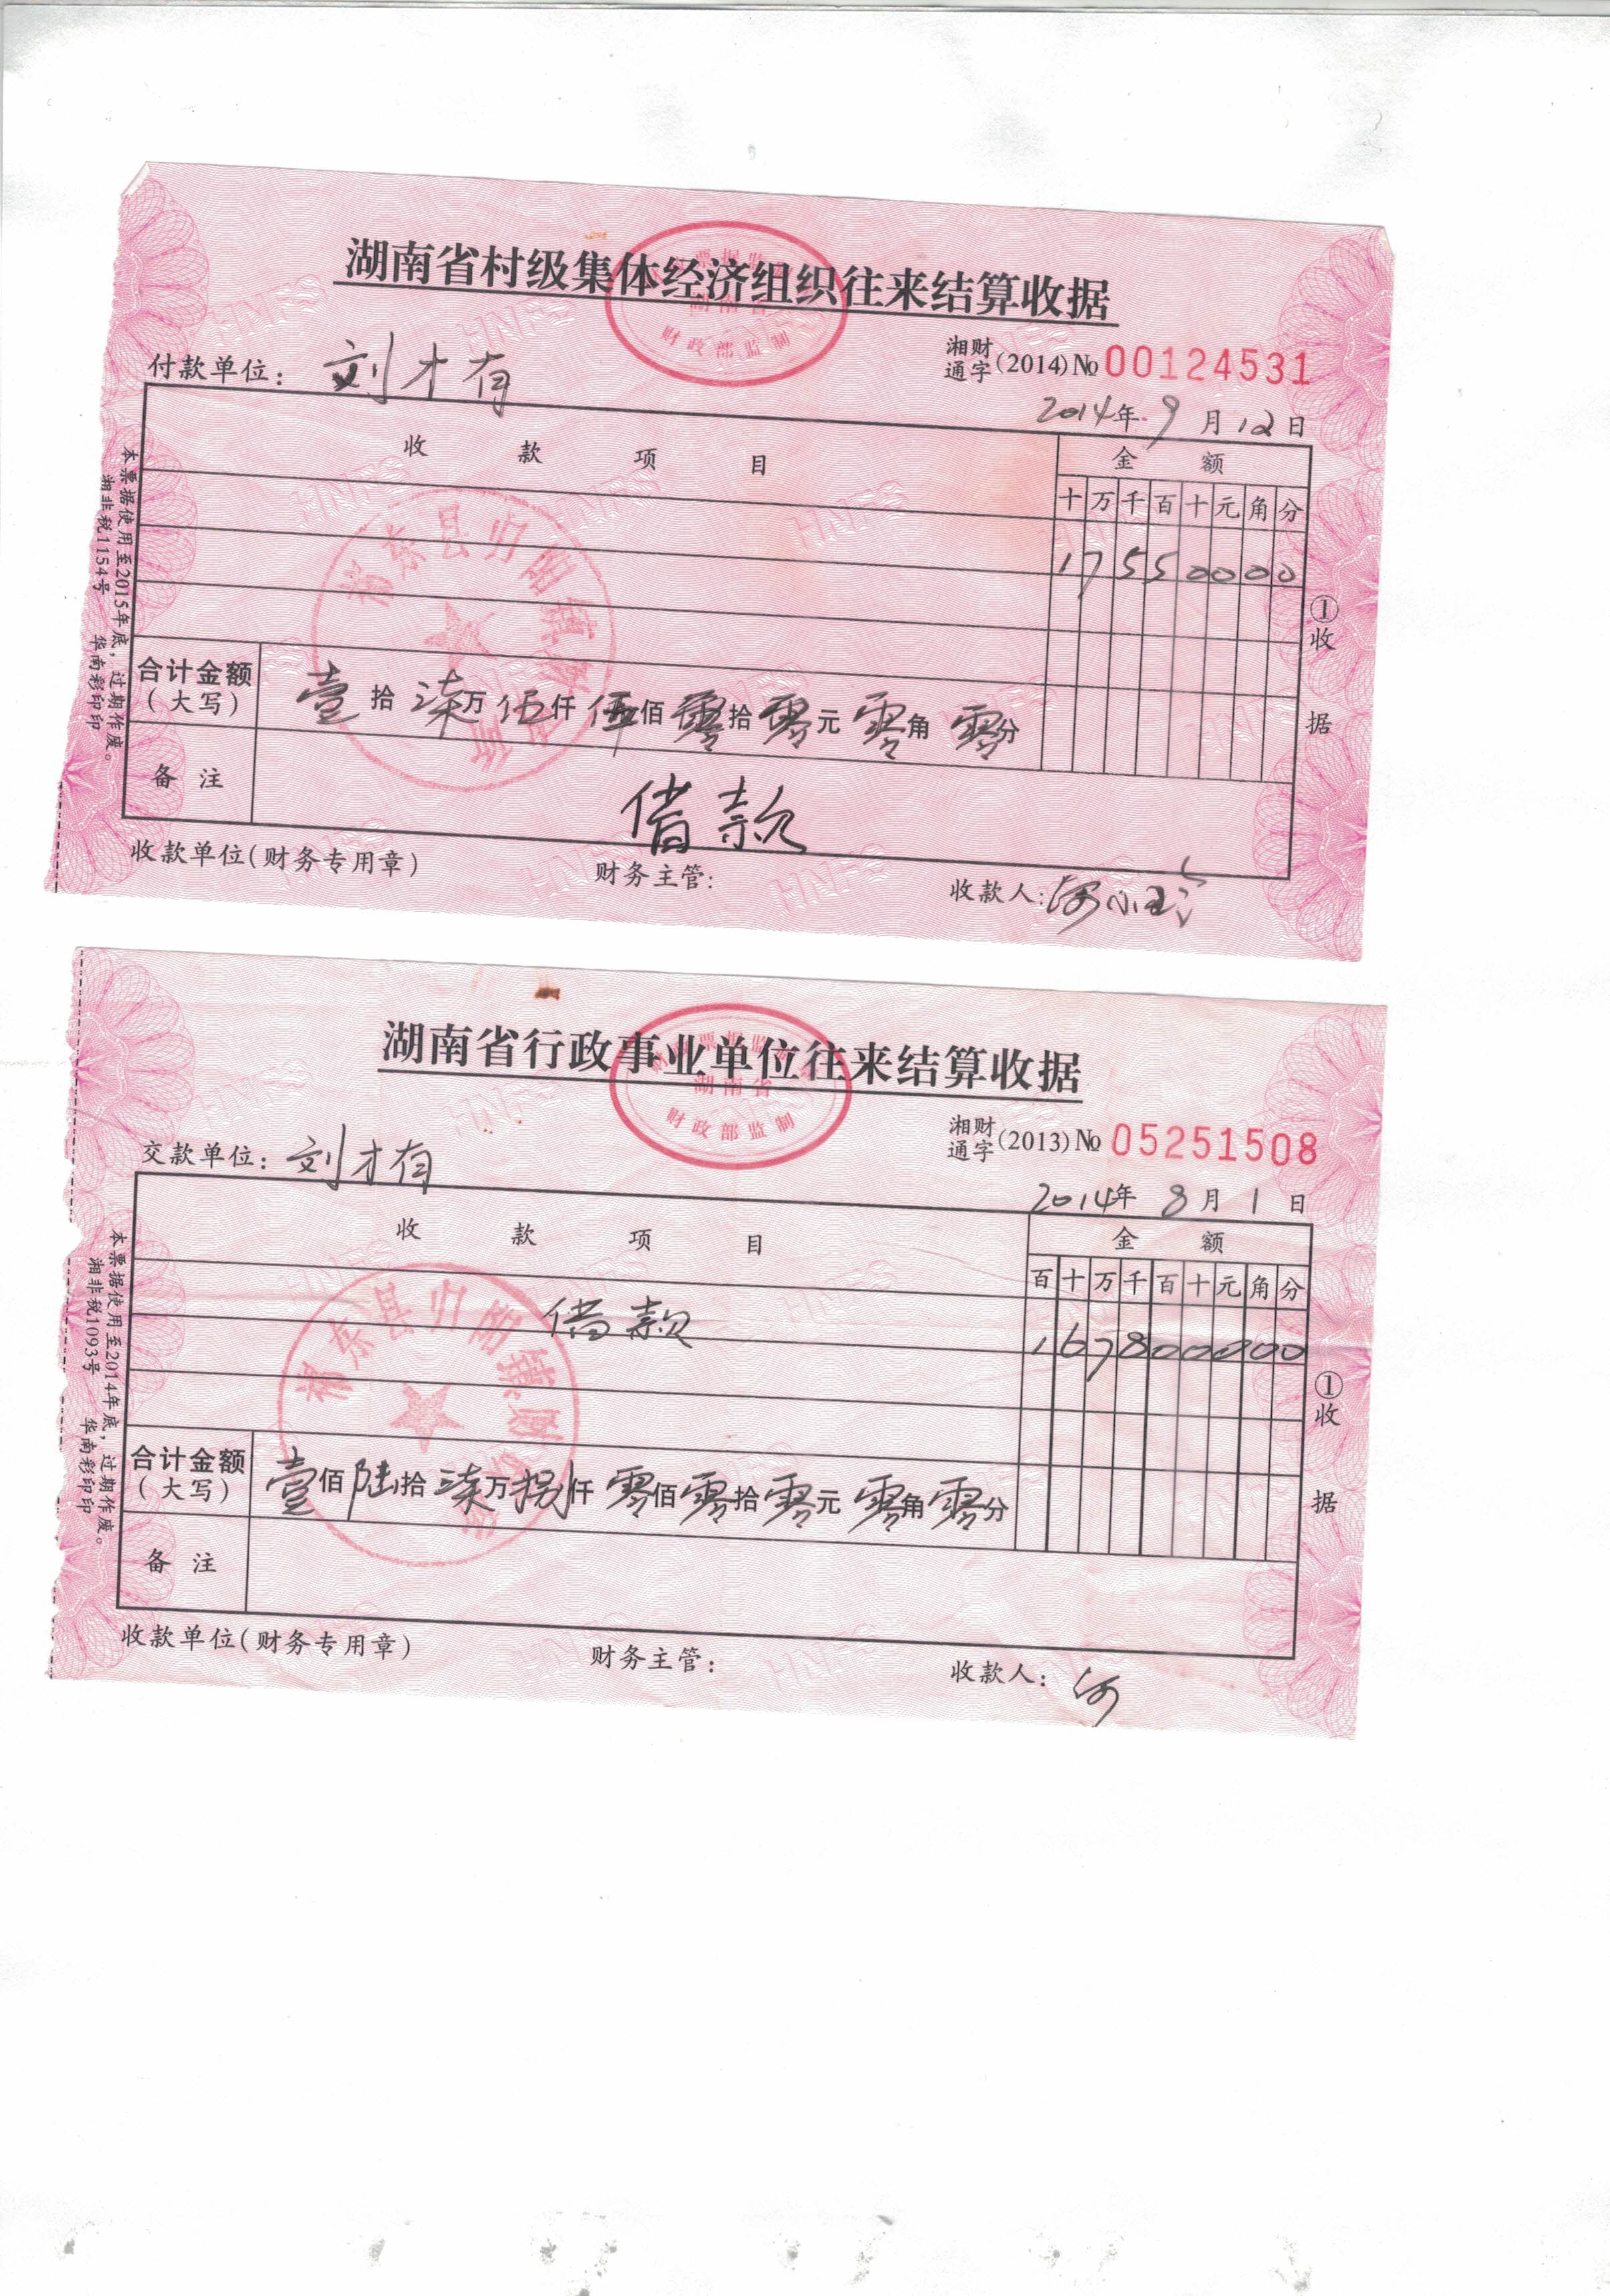 湖南省村级集体经济组织往来结算收据
湘财通字(2014)№ 00124531
付款单位：刘才有
2014年 9月 12日
收款项目 金额
十 万 千 百 十 元 角 分
1 7 5 5 0 0 0 0
合计金额(大写) 壹拾柒万伍仟伍佰零拾零元零角零分
备注 借款
收款单位(财务专用章) 财务主管： 收款人：何小
①收据
本票据使用至2015年底，过期作废。
湘非税1154号 华南彩印印
湖南省
财政部监制
HNFS
湖南省行政事业单位往来结算收据
湘财通字(2013)№ 05251508
交款单位：刘才有
2014年 8月 1日
收款项目 金额
百 十 万 千 百 十 元 角 分
借款 1 6 7 8 0 0 0 0 0
合计金额(大写) 壹佰陆拾柒万捌仟零佰零拾零元零角零分
备注
收款单位(财务专用章) 财务主管： 收款人：何
①收据
本票据使用至2014年底，过期作废。
湘非税1093号 华南彩印印
湖南省
财政部监制
HNFS